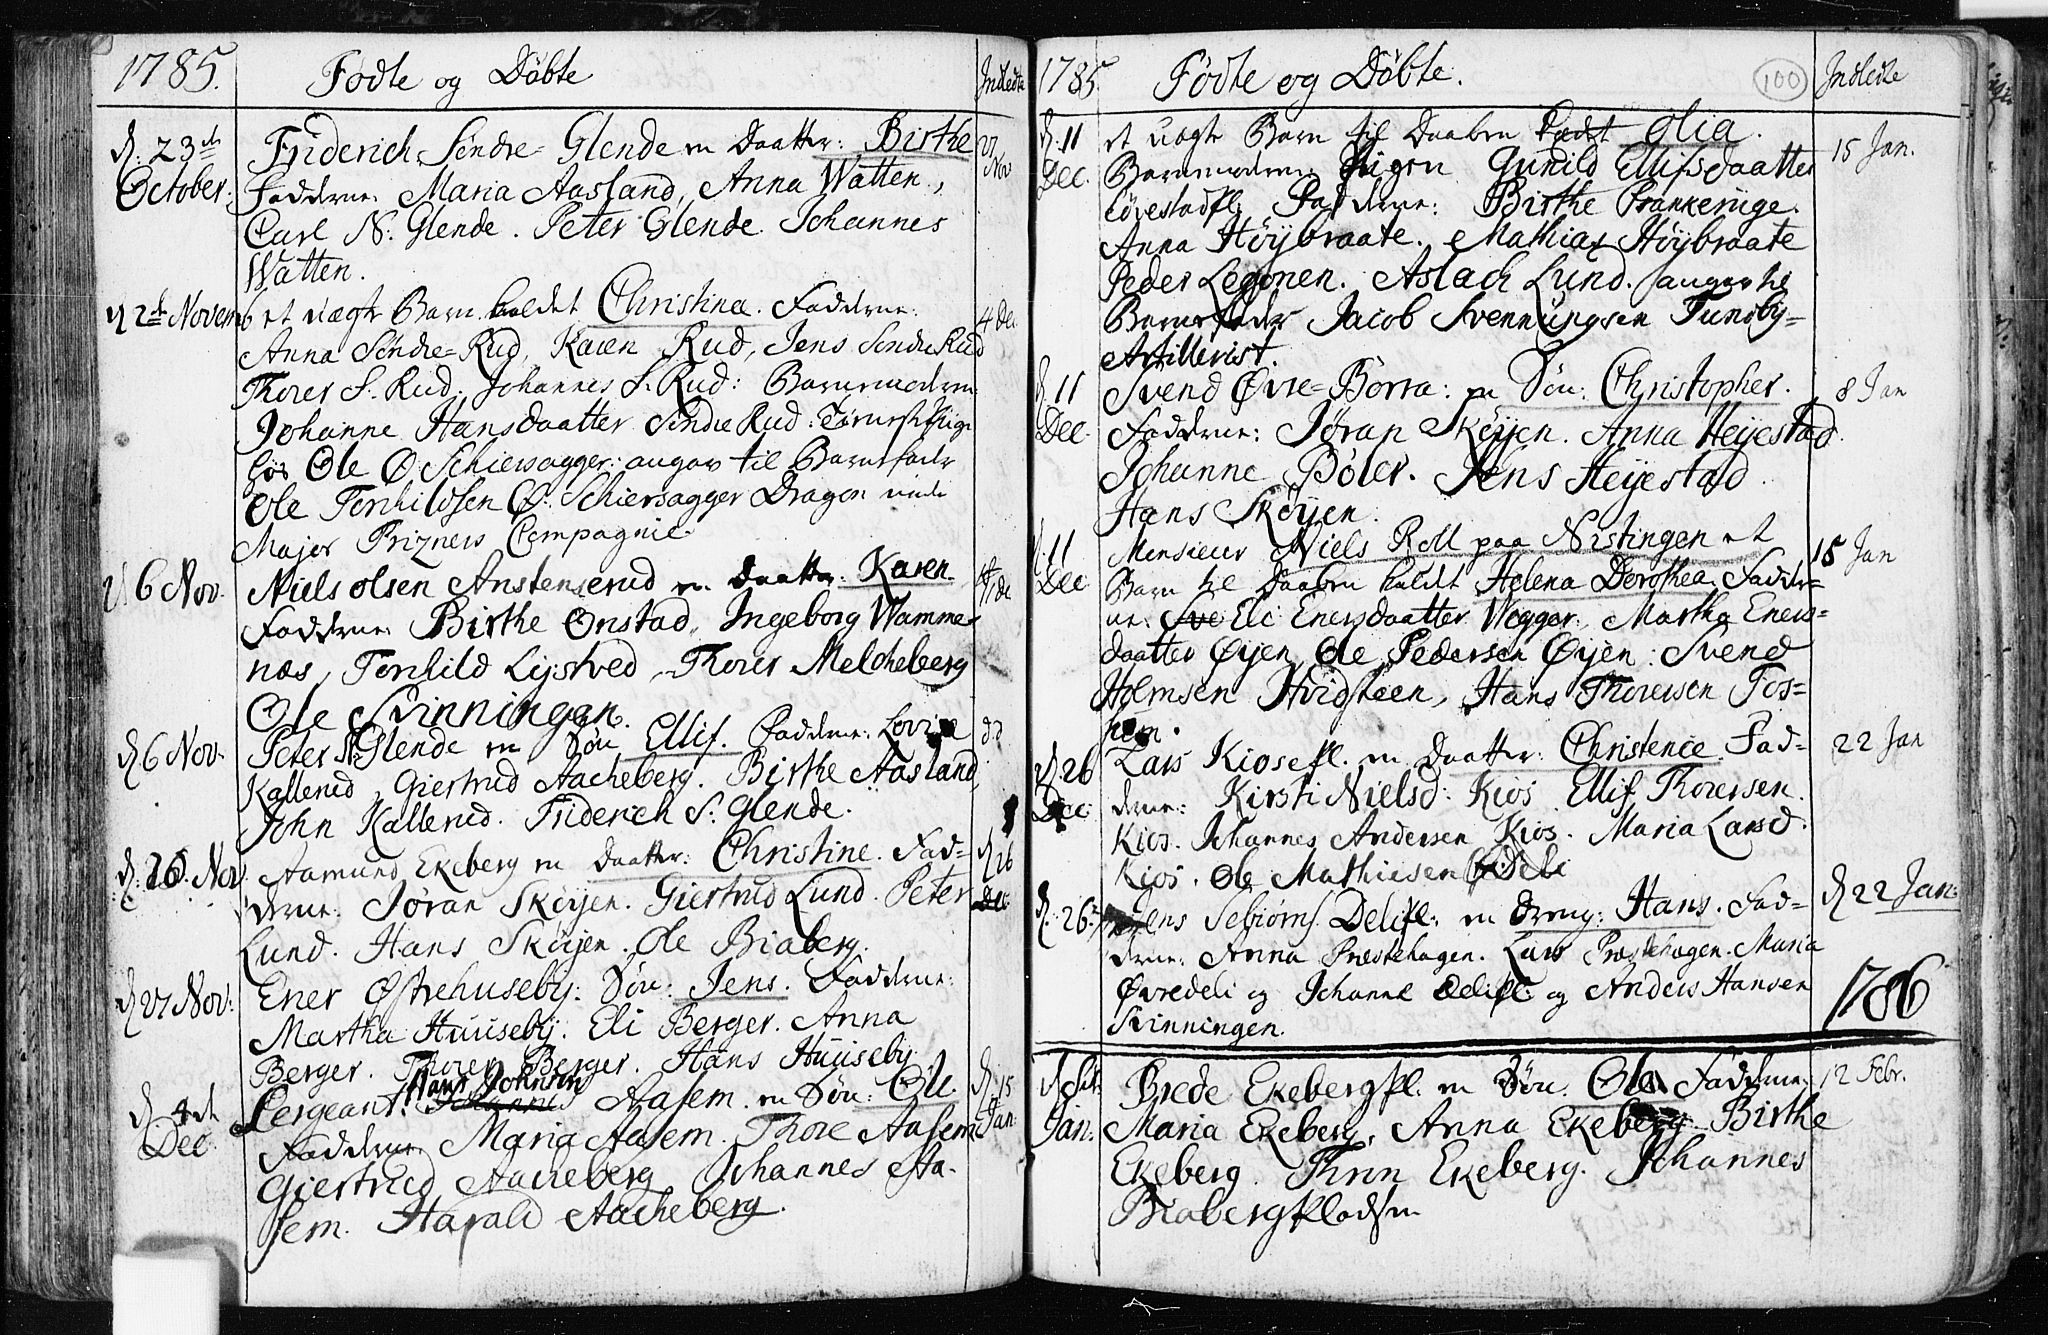 1785. Födte og Döbte Indledte
d. 23de Friderich Söndre-Glende en Daatter: Birthe 27 Nov
October. Fadderne: Maria Aasland, Anna Watten,
Carl N: Glende. Peter Glende. Johannes
Watten.
d 2de Novemb et uægte Barn kaldet Christina. Fadderne: 4 Dec
Anna Söndre-Rud, Karen Rud, Jens Söndre Rud
Thorer S. Rud. Johannes S. Rud: Barnemoderen:
Johanne Hansdaatter Söndre Rud:
hos Ole Ø. Schiersagger: angav til Barnefader
Ole Torchildsen Ø. Schiersagger Dragon under
Major Prizners Compagnie.
d 6 Nov. Niels Olsen Anstenserud en Daatter: Karen 4 de
Fadderne: Birthe Onstad, Ingeborg Wamme-
næs, Torchild Lystved, Thorer Melcheberg
Ole Svinningen.
d 6 Nov. Peter N. Glende en Sön Ellif. Fadderne: Lovise
Kallerud, Giertrud Aacheberg. Birthe Aasland,
John Kallerud. Friderich S: Glende.
d: 26. Nov Aamund Ekeberg en Daatter: Christine. Fad- d 26
derne: Jøran Skøyen. Giertrud Lund. Peter Dec
Lund. Hans Skøyen. Ole Biaberg.
d 27 Nov: Ener Østrehuseby: Sön: Jens. Fadderne:
Martha Huuseby. Eli Berger. Anna
Berger. Thorer Berger. Hans Huuseby
d 4de Sergeant Hans Johnsen Aasem. en Sön: Ole. d 15
Dec. Fadderne Maria Aasem. Thore Aasem Jan
Giertrud Aacheberg Johannes Aa-
sem. Harald Aacheberg.
1785 Födte og Döbte. 100 Indledte
d. 11 et uægte Barn til Daaben Olia. 15 Jan.
Dec. Barnemoderen Pigen Gunild Ellifsdaatter
Fadderne: Birthe Prankerüge.
Anna Höybraate. Mathias Höybraate
Peder Legonen. Aslach Lund. angav til
Barnefader Jacob Svennungsen Tunsby-
Artillerist.
d. 11 Svend Øvre-Börra: en Sön: Christopher. 8 Jan
Dec. Fadderne: Jøran Skøyen. Anna Heyestad.
Johanne Böler. Jens Heyestad
Hans Skøyen.
d. 11 Monsieur Niels Roll paa Nistingen et 15 Jan
Dec Barn til Daaben kaldt Helena Dorothea. Fadder-
ne: Eli Enersdaatter Wegger. Martha Eners-
daatter Øyen, Ole Pedersen Øyen: Svend
Holmsen Hvidsteen, Hans Thorersen Fos-
hem.
d. 26 Lars Kiosepl. en Daatter: Christence. Fad- 22 Jan
Dec derne: Kirsti Nielsd: Kios. Ellif Thorersen.
Kios. Johannes Andersen Kios. Maria Larsd.
Kios. Ole Mathiesen
d. 26 Jens Sebiørns. Delipl: en Dreng: Hans. Fad- d 22 Jan:
derne: Anna Præstehagen. Lars Præstehagen. Maria
Øvredeli og Johanne Delipl: og Anders Hansen
Svinningen.
1786
Brede Ekebergpl. en Sön. Ole. Fadderne: 12 Febr.
Jan: Maria Ekeberg, Anna Ekeberg Birthe
Ekeberg. Thron Ekeberg. Johannes
Biabergpladsen